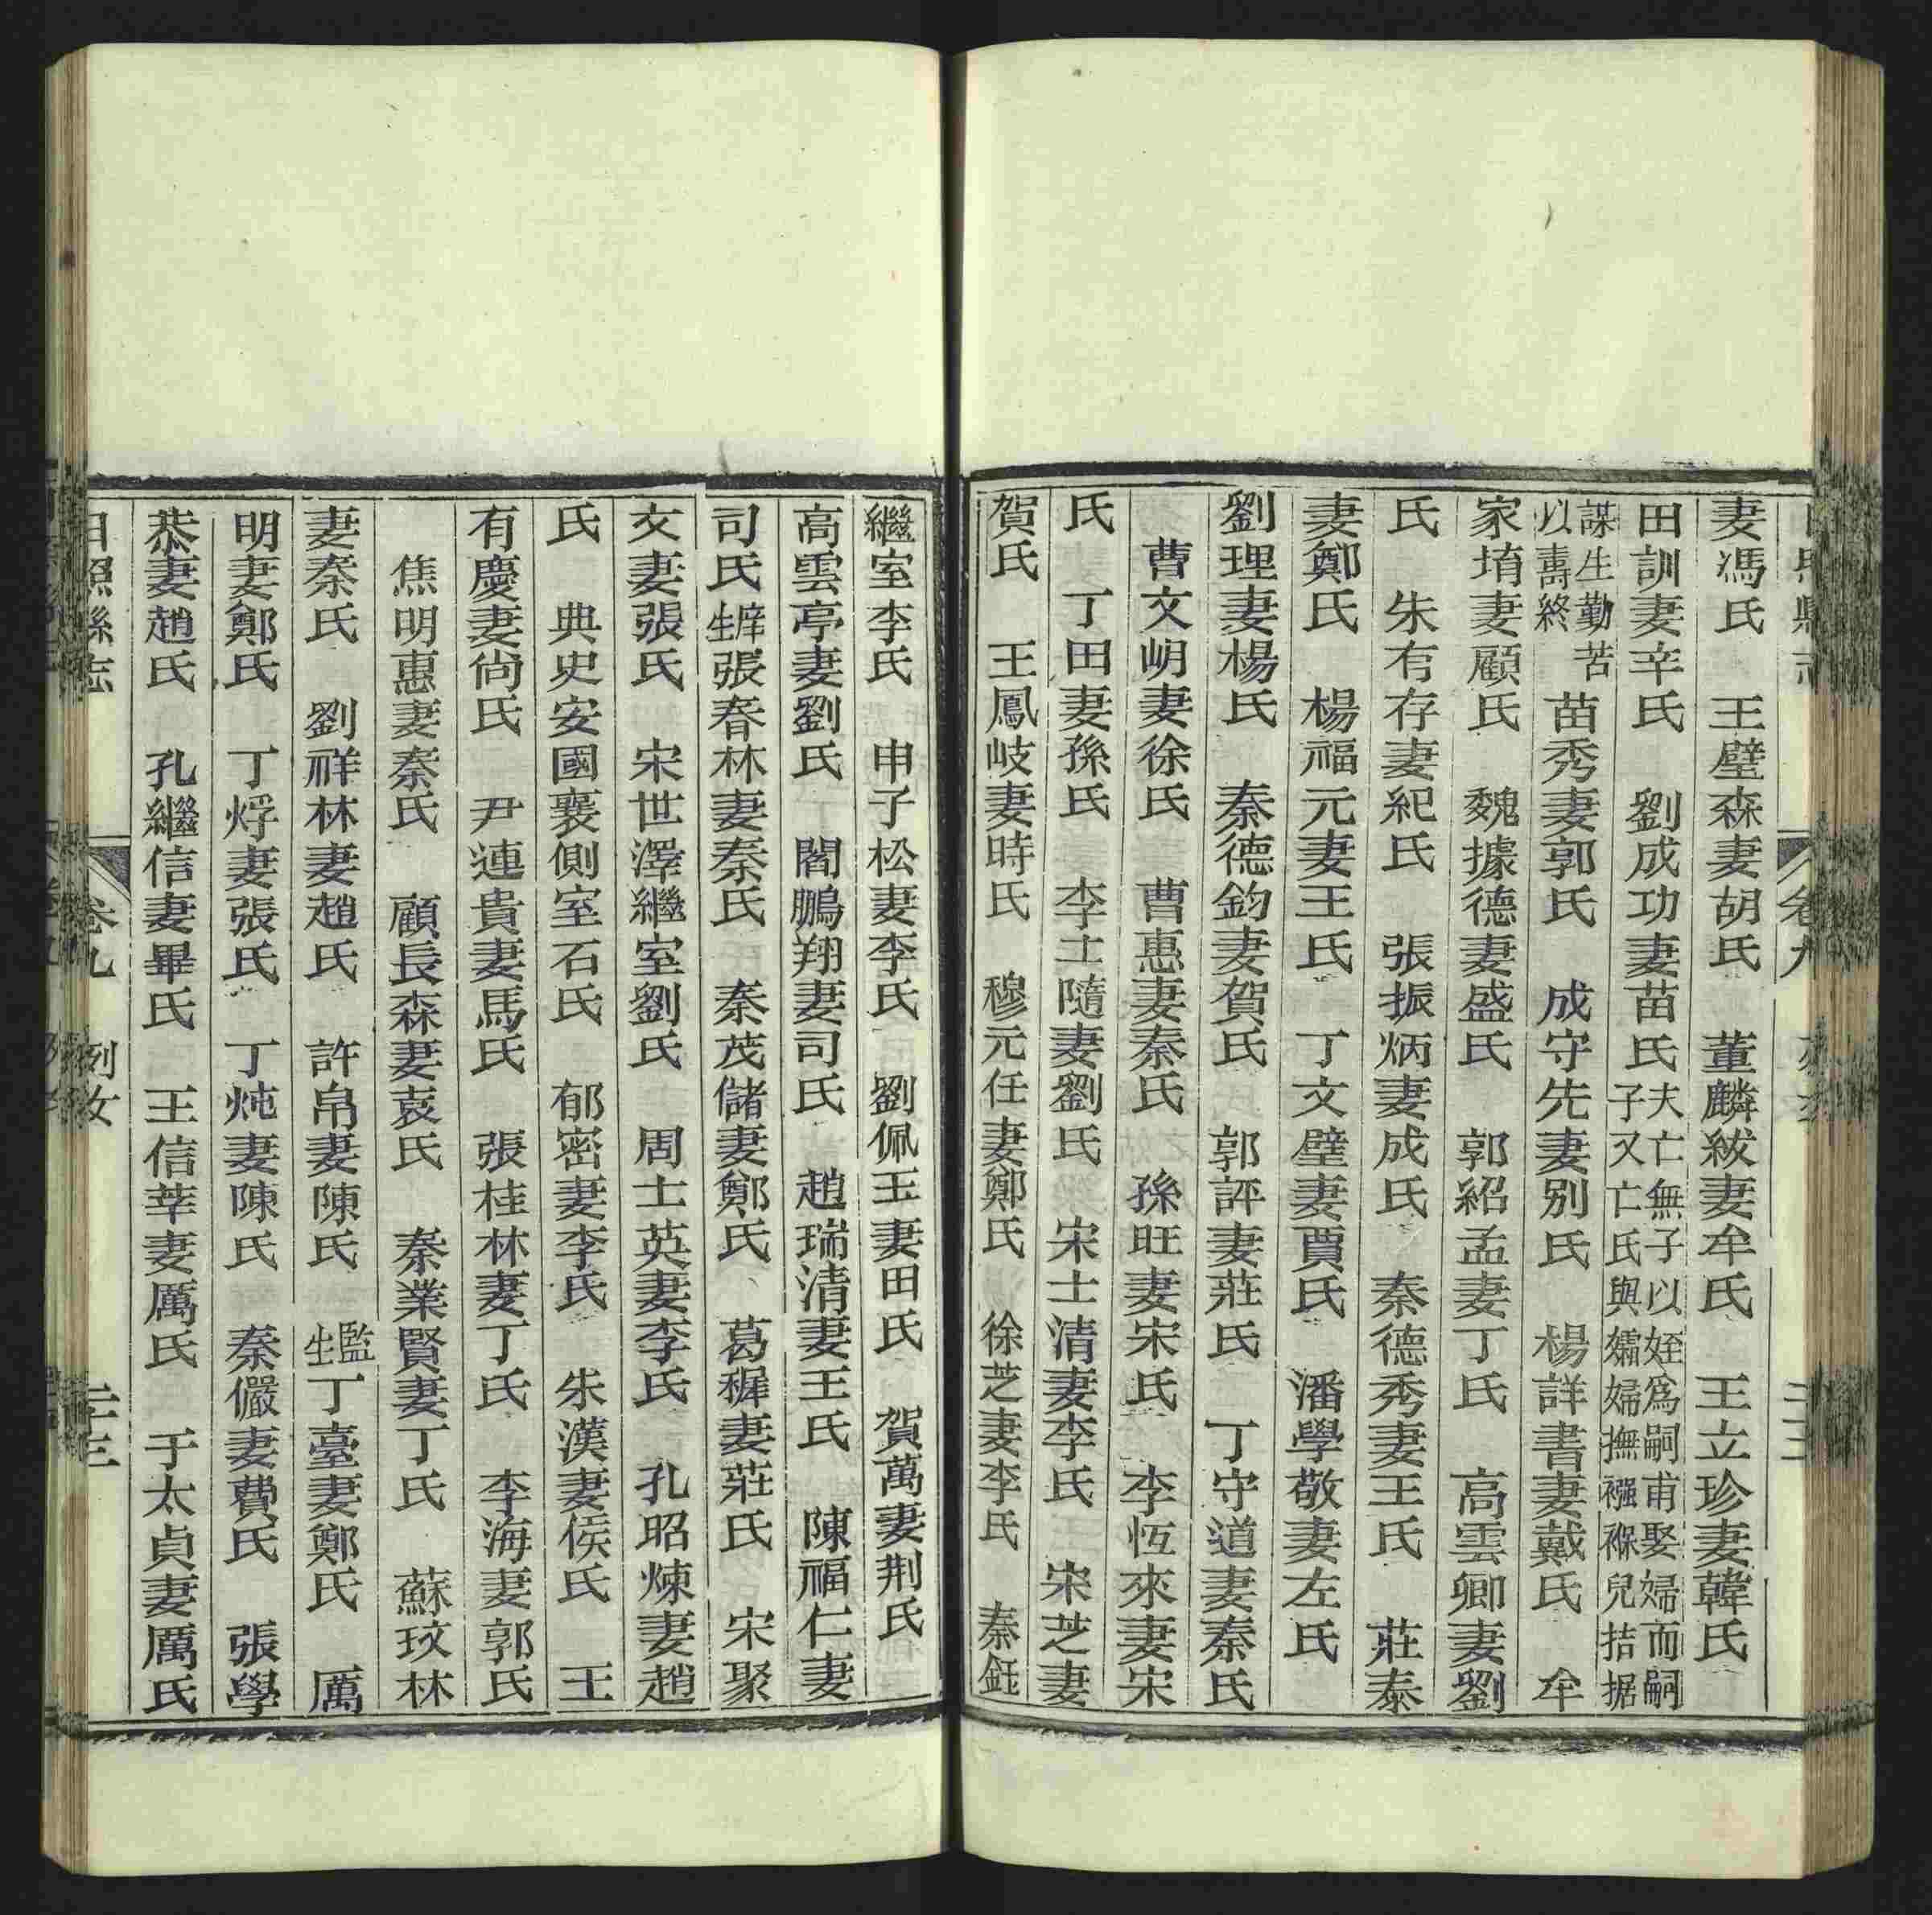 妻馮氏　王璧森妻胡氏　董麟紱妻牟氏　王立珍妻韓氏
田訓妻辛氏　劉成功妻苗氏夫亡無子以姪爲嗣甫娶婦而嗣
子又亡氏與孀婦撫襁褓兒拮据
謀生勤苦
以壽終　苗秀妻郭氏　成守先妻別氏　楊詳書妻戴氏　牟
家堉妻顧氏　魏據德妻盛氏　郭紹孟妻丁氏　高雲卿妻劉
氏　朱有存妻紀氏　張振炳妻成氏　秦德秀妻王氏　莊泰
妻鄭氏　楊福元妻王氏　丁文璧妻賈氏　潘學敬妻左氏
劉理妻楊氏　秦德鈞妻賀氏　郭評妻莊氏　丁守道妻秦氏
曹文明妻徐氏　曹惠妻秦氏　孫旺妻宋氏　李恆來妻宋
氏　丁田妻孫氏　李士隨妻劉氏　宋士清妻李氏　宋芝妻
賀氏　王鳳岐妻時氏　穆元任妻鄭氏　徐芝妻李氏　秦鈺
繼室李氏　申子松妻李氏　劉佩玉妻田氏　賀萬妻荆氏
高雲亭妻劉氏　閻鵬翔妻司氏　趙瑞清妻王氏　陳福仁妻
司氏　庠生張春林妻秦氏　秦茂儲妻鄭氏　葛穉妻莊氏　宋聚
文妻張氏　宋世澤繼室劉氏　周士英妻李氏　孔昭煉妻趙
氏　典史安國襄側室石氏　郁密妻李氏　朱漢妻侯氏　王
有慶妻尙氏　尹連貴妻馬氏　張桂林妻丁氏　李海妻郭氏
焦明惠妻秦氏　顧長森妻袁氏　秦業賢妻丁氏　蘇玟林
妻秦氏　劉祥林妻趙氏　許帛妻陳氏　監生丁臺妻鄭氏　厲
明妻鄭氏　丁烰妻張氏　丁炖妻陳氏　秦儼妻費氏　張學
恭妻趙氏　孔繼信妻畢氏　王信莘妻厲氏　于太貞妻厲氏
日照縣志　卷九　列女　二十三